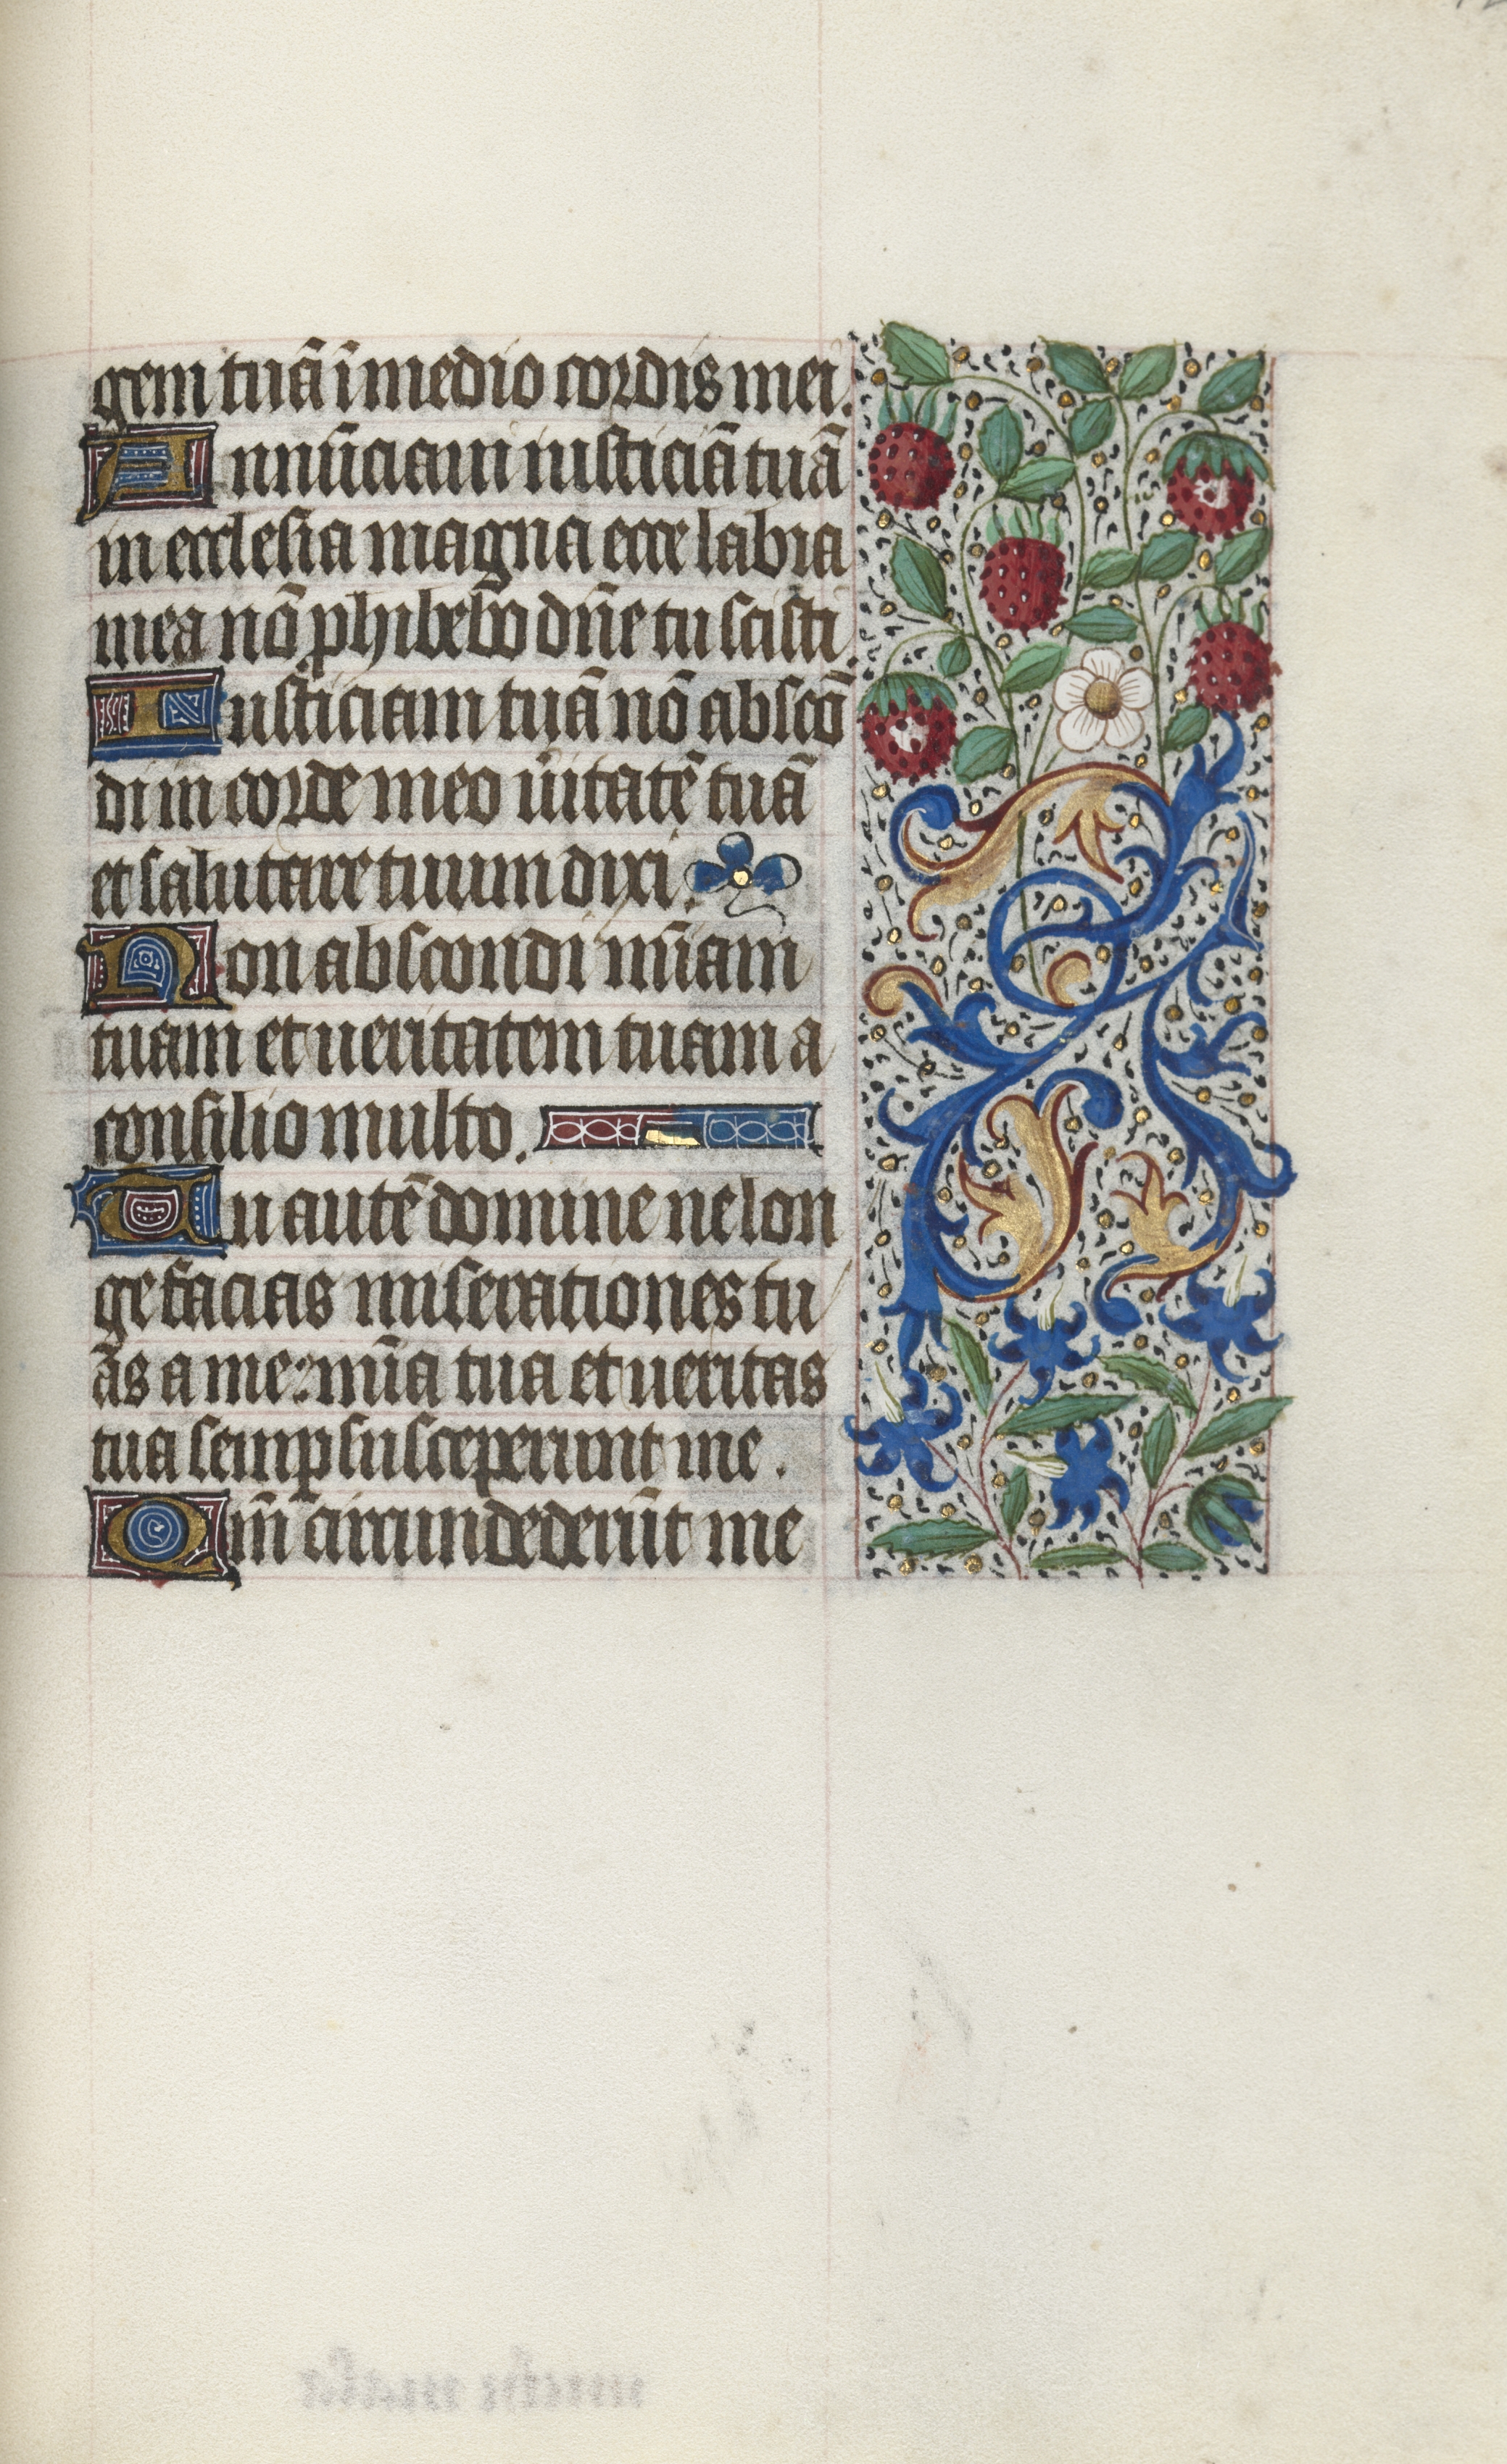 gem tuā ī medio cordis mei.
Annūciaui iusticiā tuā
in ecclesia magna ecce labia
mea nō phibebo dn̄e tu scisti.
Iusticiam tuā nō abscō
di in corde meo u̅itatē tuā
et salutare tuum dixi.
Non abscondi mīam
tuam et ueritatem tuam a
consilio multo.
Tu autē domine ne lon
ge facias miserationes tu
as a me: mīa tua et ueritas
tua semp susceperunt me.
Qm̄ circundederūt me